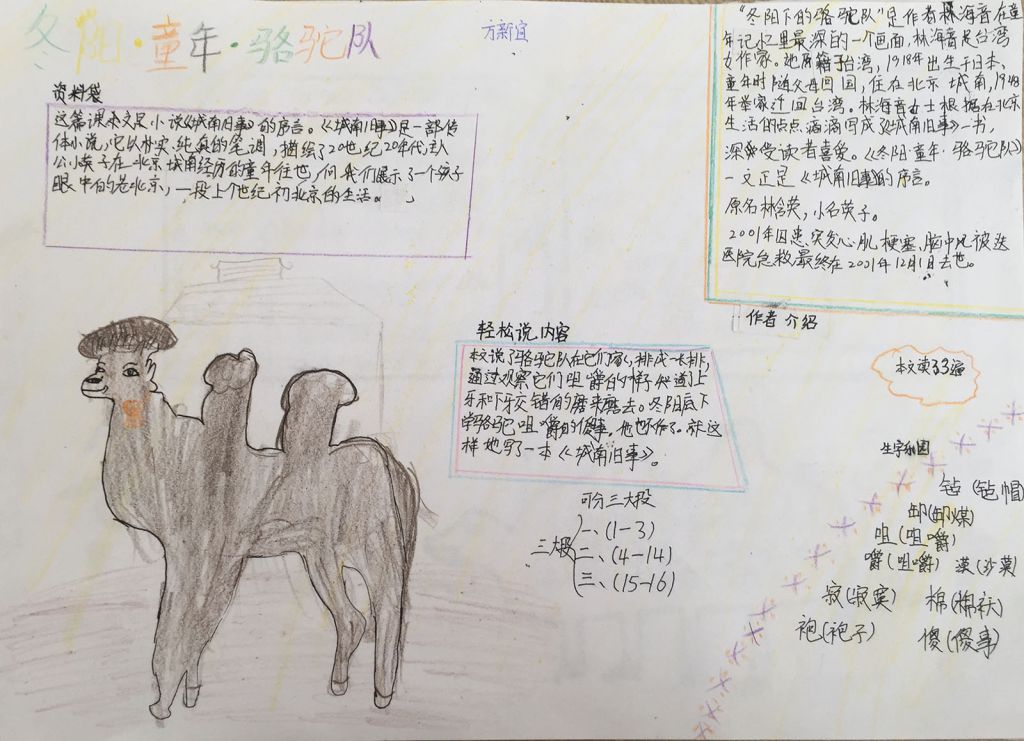 冬阳·童年·骆驼队
方新宜
资料袋
这篇课本文是小说《城南旧事》的序言。《城南旧事》是一部传
体小说,它以朴实,纯真的笔调,描绘了20世纪20年代,主人
公小英子在北京城南经历的童年往也,向我们展示了一个孩子
眼中的老北京,一段上个世纪初北京的生活。
"冬阳下的骆驼队"是作者林海音在童
年记忆里最深的一个画面,林海音是台湾
女作家。她原籍于台湾,1918年出生于日本、
童年时随父母回国,住在北京城南,1948
年举家迁回台湾。林海音女士根据在北京
生活的点点滴滴写成了《城南旧事》一书,
深受读者喜爱。《冬阳·童年·骆驼队》
一文正是《城南旧事》的序言。
原名林含英,小名英子。
2001年因患突发心肌梗塞、脑中风被送
医院急救最终在2001年12月1日去也。
作者介绍
轻松说内容
本文说了骆驼队在它们家,排成一长排,
通过观察它们咀嚼的样子知道了上
牙和下牙交错的磨来磨去。冬阳底下
学骆驼咀嚼的傻事。他也不做了。就这
样她写了一本《城南旧事》。
可分三大段
三段
一、(1-3)
二、(4-14)
三、(15-16)
本文读33遍
生字乐园
毡(毡帽)
卸(卸煤)
咀(咀嚼)
嚼(咀嚼) 漠(沙漠)
寂(寂寞) 棉(棉袄)
袍(袍子) 傻(傻事)